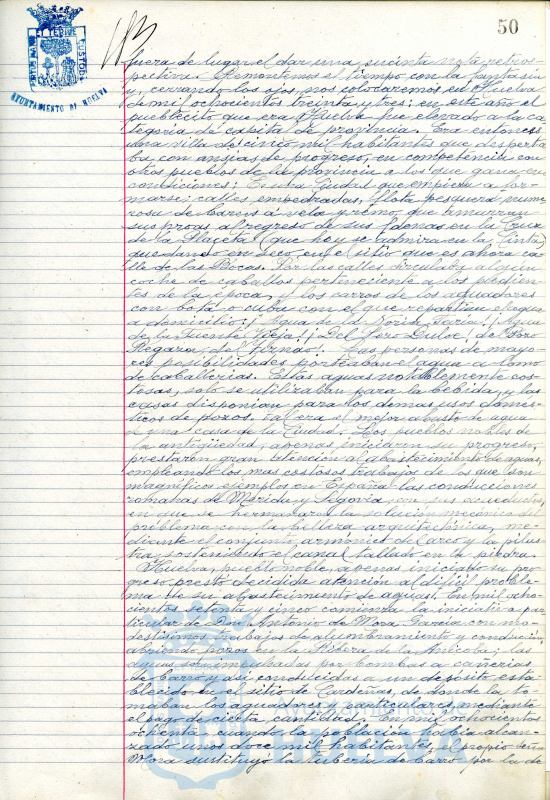 50
AYUNTAMIENTO DE HUELVA
fuera de lugar el dar una sucinta nota retros-
pectiva. Remontemos el tiempo con la fantasía
y, cerrando los ojos, nos colocaremos en Huelva
de mil ochocientos treinta y tres: en este año el
pueblecito que era Huelva fue elevado a la ca-
tegoría de capital de provincia. Era entonces
una villa de cinco mil habitantes que desperta-
ba, con ansias de progreso, en competencia con
otros pueblos de la provincia a los que gana en
condiciones: Es una Ciudad que empieza a for-
marse; calles empedradas, flota pesquera nume-
rosa de barcos a vela y remo, que amarran
sus proas al regreso de sus faenas en la Cruz
de la Placeta (que hoy se admira en la Cinta)
quedando en seco en el sitio que es ahora ca-
lle de las Bocas. Por las calles circulaba algún
coche de caballos perteneciente a los pudien-
tes de la época, y los carros de los aguadores
con bota o cubu con el que repartían el agua
a domicilio:
de la Fuente Vieja! ¡Del Pozo Dulce, del Pozo
Las personas de mayo-
res posibilidades porteaban el agua a lomo
de caballerías. Estas aguas notablemente cos-
tosas, solo se utilizaban para la bebida, y las
casas disponían para los demas usos domés-
ticos de pozos. Tal era el mejor abasto de aguas
a una casa de la Ciudad. Los pueblos nobles de
la antigüedad, apenas iniciaron su progreso,
prestaron gran atención al abastecimiento de aguas,
empleando los mas costosos trabajos de los que son
magníficos ejemplos en España las conducciones
romanas de Merida y Segovia, con sus acueductos,
en que se hermanaron la solución mecánica del
problema con la belleza arquitectónica, me-
diante el conjunto armónico del arco y la pilas-
tra, sosteniendo el canal tallado en la piedra.
Huelva, pueblo noble, apenas iniciado su pro-
greso prestó decidida atención al difícil proble-
ma de su abastecimiento de aguas. En mil ocho-
cientos setenta y cinco comienza la iniciativa par-
ticular de Don Antonio de Mora García con mo-
destísimos trabajos de alumbramiento y conducción,
abriendo pozos en la Ribera de la Anicoba; las
aguas son impulsadas por bombas a cañerías
de barro y asi conducidas a un depósito esta-
blecido en el sitio de Cardeñas, de donde la to-
maban los aguadores y particulares, mediante
el pago de cierta cantidad. En mil ochocientos
ochenta, cuando la población había alcan-
zado unos doce mil habitantes, el propio señor
Mora sustituyó la tubería de barro por la de